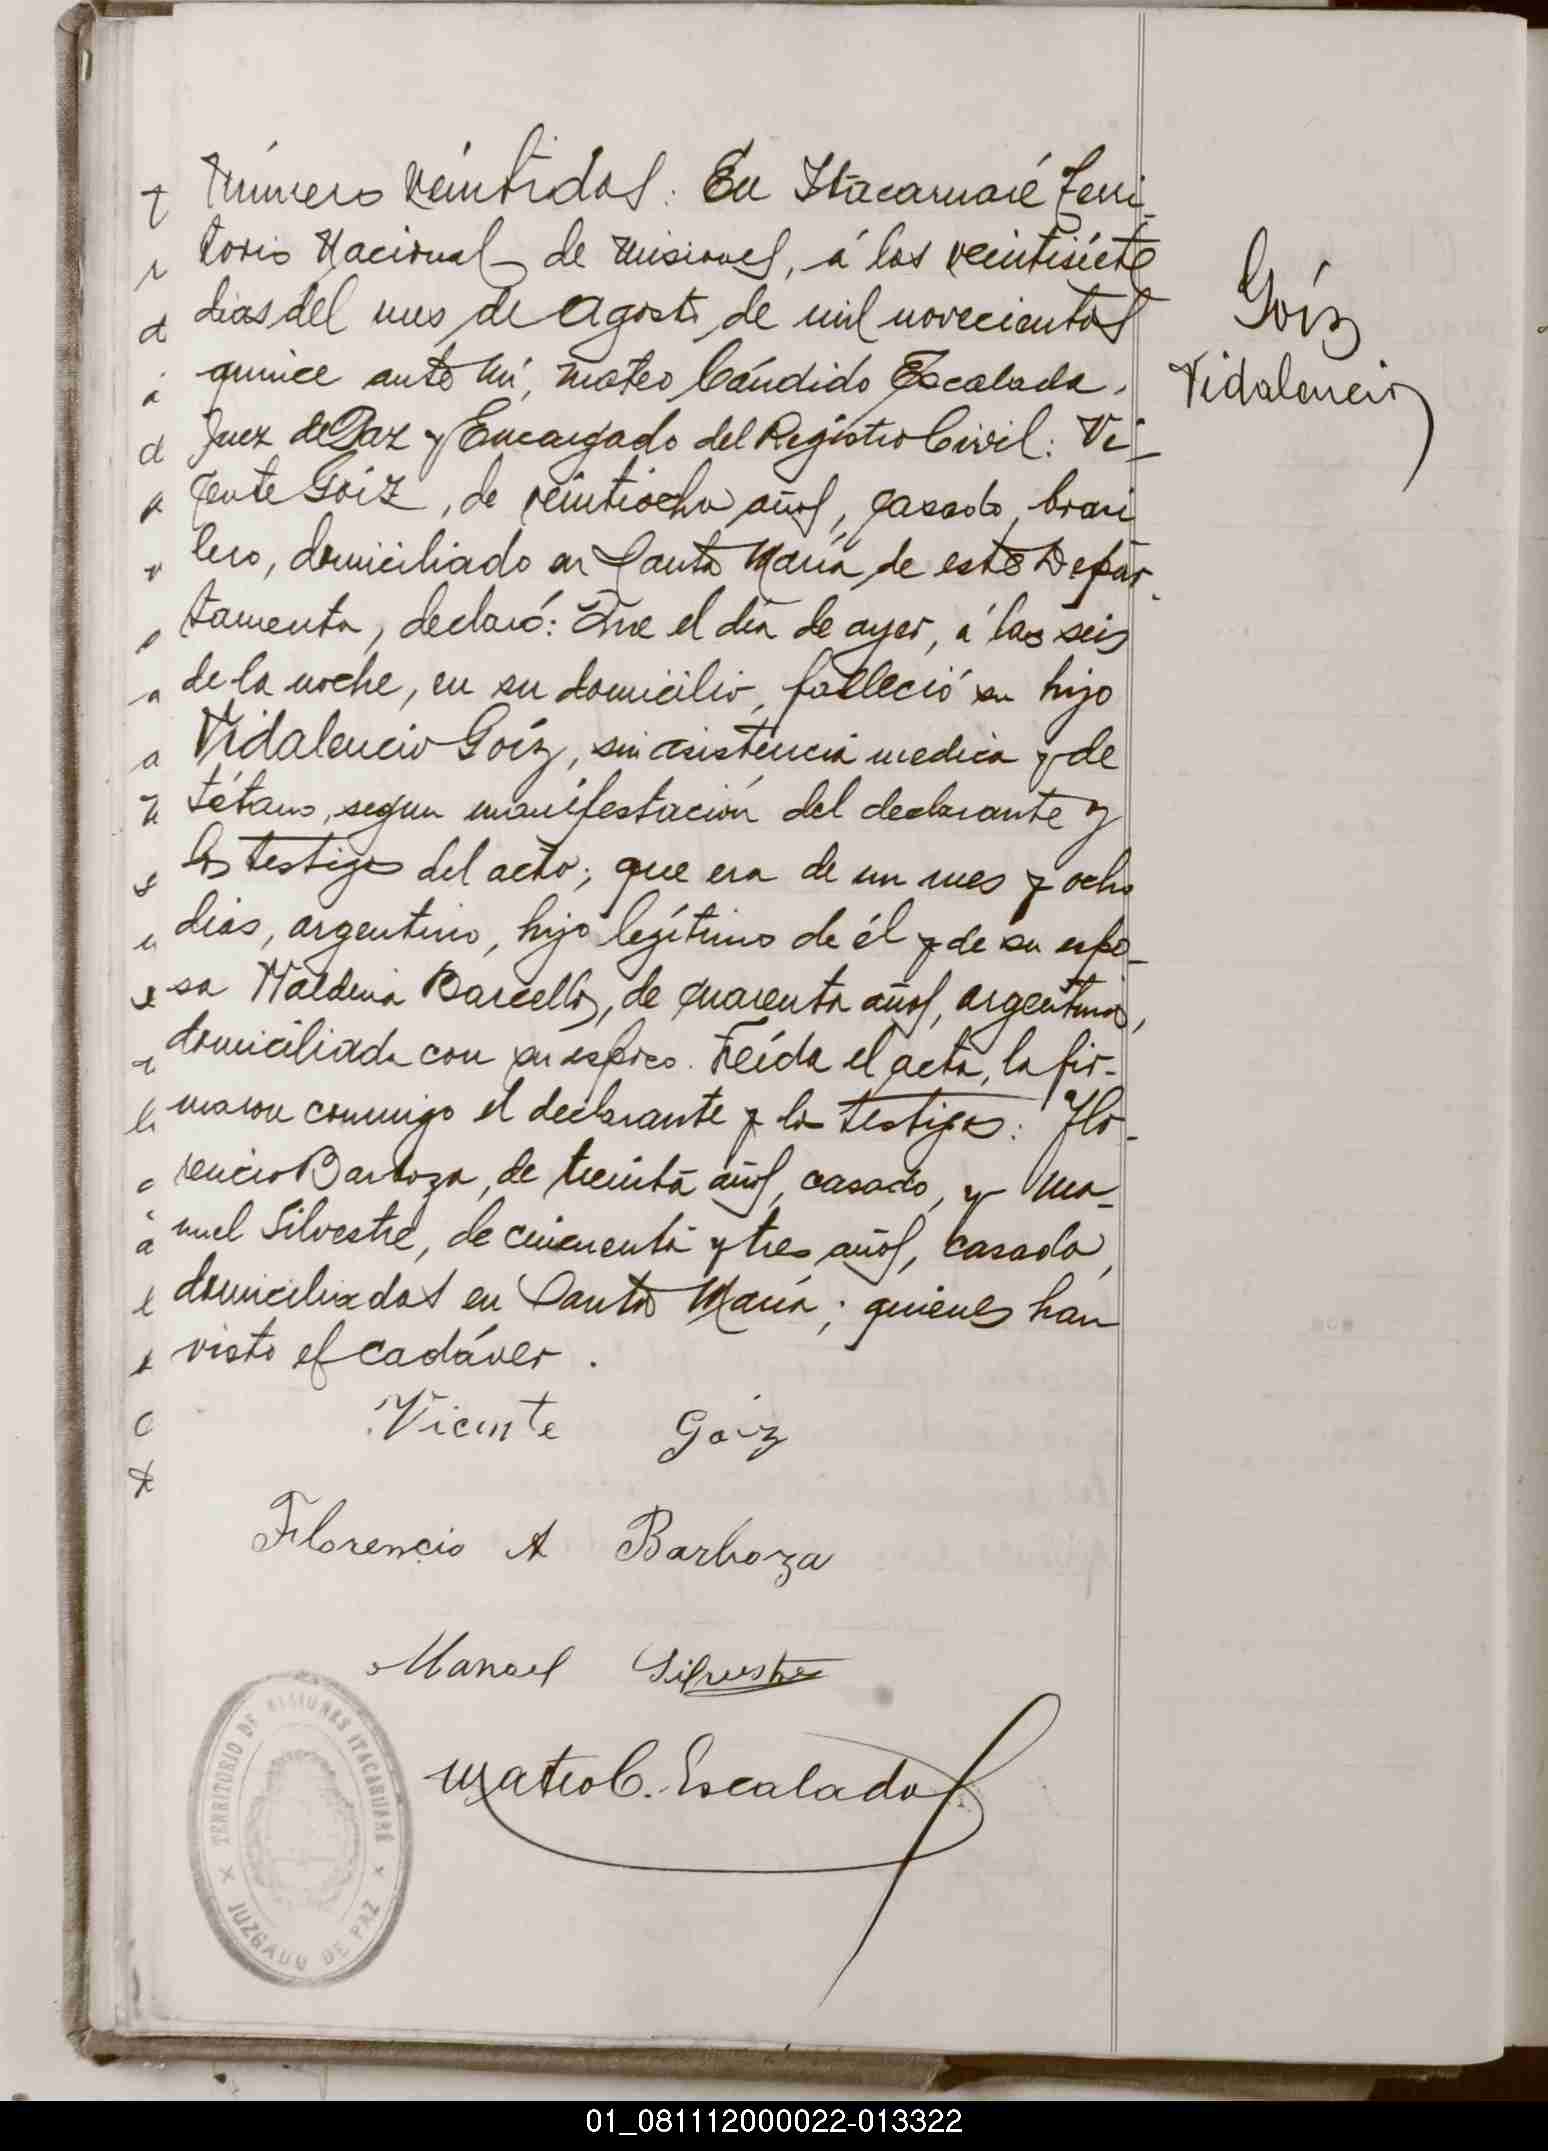 Número veintidos: En Itacaruaré Terri-
torio Nacional de Misiones, á los veintisiete
dias del mes de Agosto de mil novecientos
quince ante mí, Mateo Cándido Escalada,
Juez de Paz y Encargado del Registro Civil: Vi-
cente Góiz, de veintiocho años, casado, brasi
lero, domiciliado en Santa María de este Depar-
tamento, declaró: Que el día de ayer, á las seis
de la noche, en su domicilio, falleció su hijo
Vidalencio Goíz, sin asistencia medica y de
tétano, segun manifestación del declarante y
los testigos del acto; que era de un mes y ocho
dias, argentino, hijo legítimo de él y de su espo-
sa Maldina Barcellos, de cuarenta años, argentina,
domiciliada con su esposo. Leída el acta, la fir-
maron conmigo el declarante y los testigos: Flo-
rencio Barboza, de treinta años, casado, y Ma-
nuel Silvestre, de cincuenta y tres años, casado,
domiciliados en Santa María; quienes han
visto el cadáver.
Goíz
Vidalencio
Vicente Goiz
Florencio A Barboza
Manoel Silvestre
Mateo C. Escalada
TERRITORIO DE MISIONES ITACARUARÉ
JUZGADO DE PAZ
01_081112000022-013322